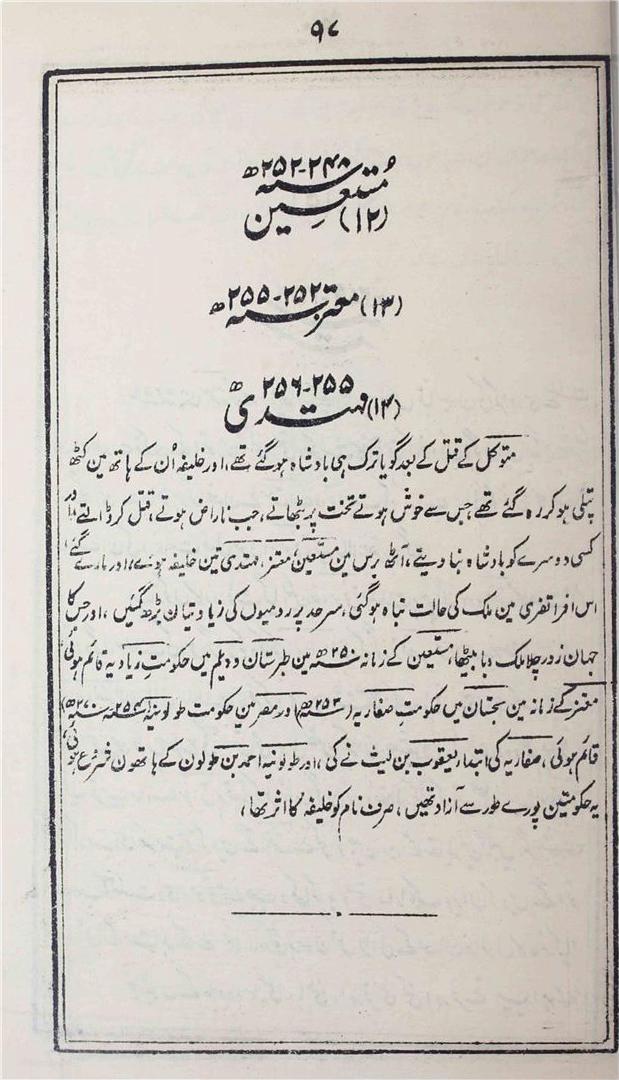 ۹۸
۲۴۸-۲۵۲ھ
(۱۲) مُستعِین سنہ
(۱۳) معتز سنہ ۲۵۲-۲۵۵ھ
۲۵۵-۲۵۶ھ
(۱۴) مہتدی
متوکل کے قتل کے بعد گویا ترک ہی بادشاہ ہوگئے تھے، اور خلیفہ اُن کے ہاتھ مین کٹھ
پتلی ہو کر رہ گئے تھے جس سے خوش ہوتے تخت پر بٹھاتے، جب ناراض ہوتے، قتل کر ڈالتے، اور
کسی دوسرے کو بادشاہ بنا دیتے، آٹھ برس مین مستعین، معتز، مہتدی تین خلیفہ ہوئے، اور مارے گئے،
اس افراتفری مین ملک کی حالت تباہ ہوگئی، سرحد پر رومیوں کی زیادتیان بڑھ گئیں، اور جس کا
جہان زور چلا ملک دبا بیٹھا، مستعین کے زمانہ سنہ ۲۵۰ھ مین طبرستان و دیلم میں حکومت زیادیہ قائم ہوئی
معتز کے زمانہ مین سجستان میں حکومتِ صفاریہ (سنہ ۲۵۳ھ) اور مصر مین حکومت طولونیہ (سنہ ۲۵۴ھ-سنہ ۲۷۰ھ)
قائم ہوئی، صفاریہ کی ابتدا یعقوب بن لیث نے کی، اور طولونیہ احمد بن طولون کے ہاتھون شروع ہوئی،
یہ حکومتین پورے طور سے آزاد تھیں، صرف نام کو خلیفہ کا اثر تھا،